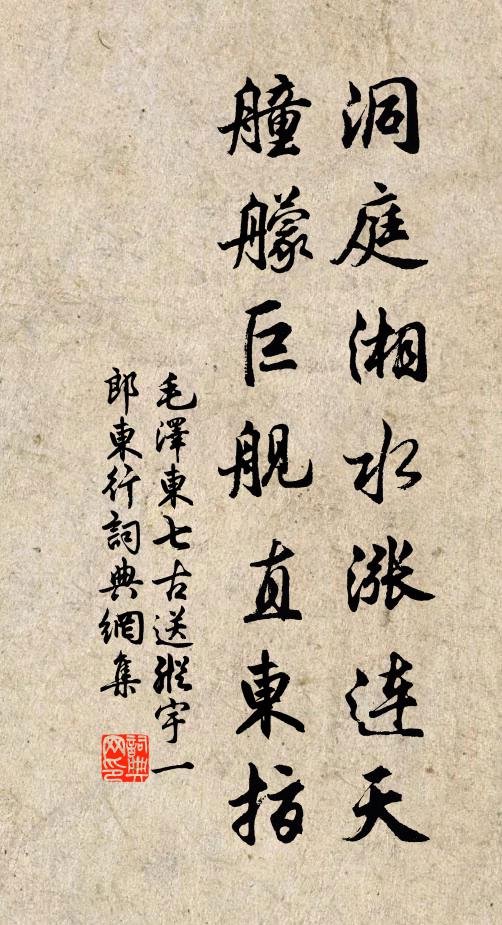 洞庭湘水涨连天
艟艨巨舰直東指
毛澤東七古送縱宇一
郎東行詞典網集
詞典
网印